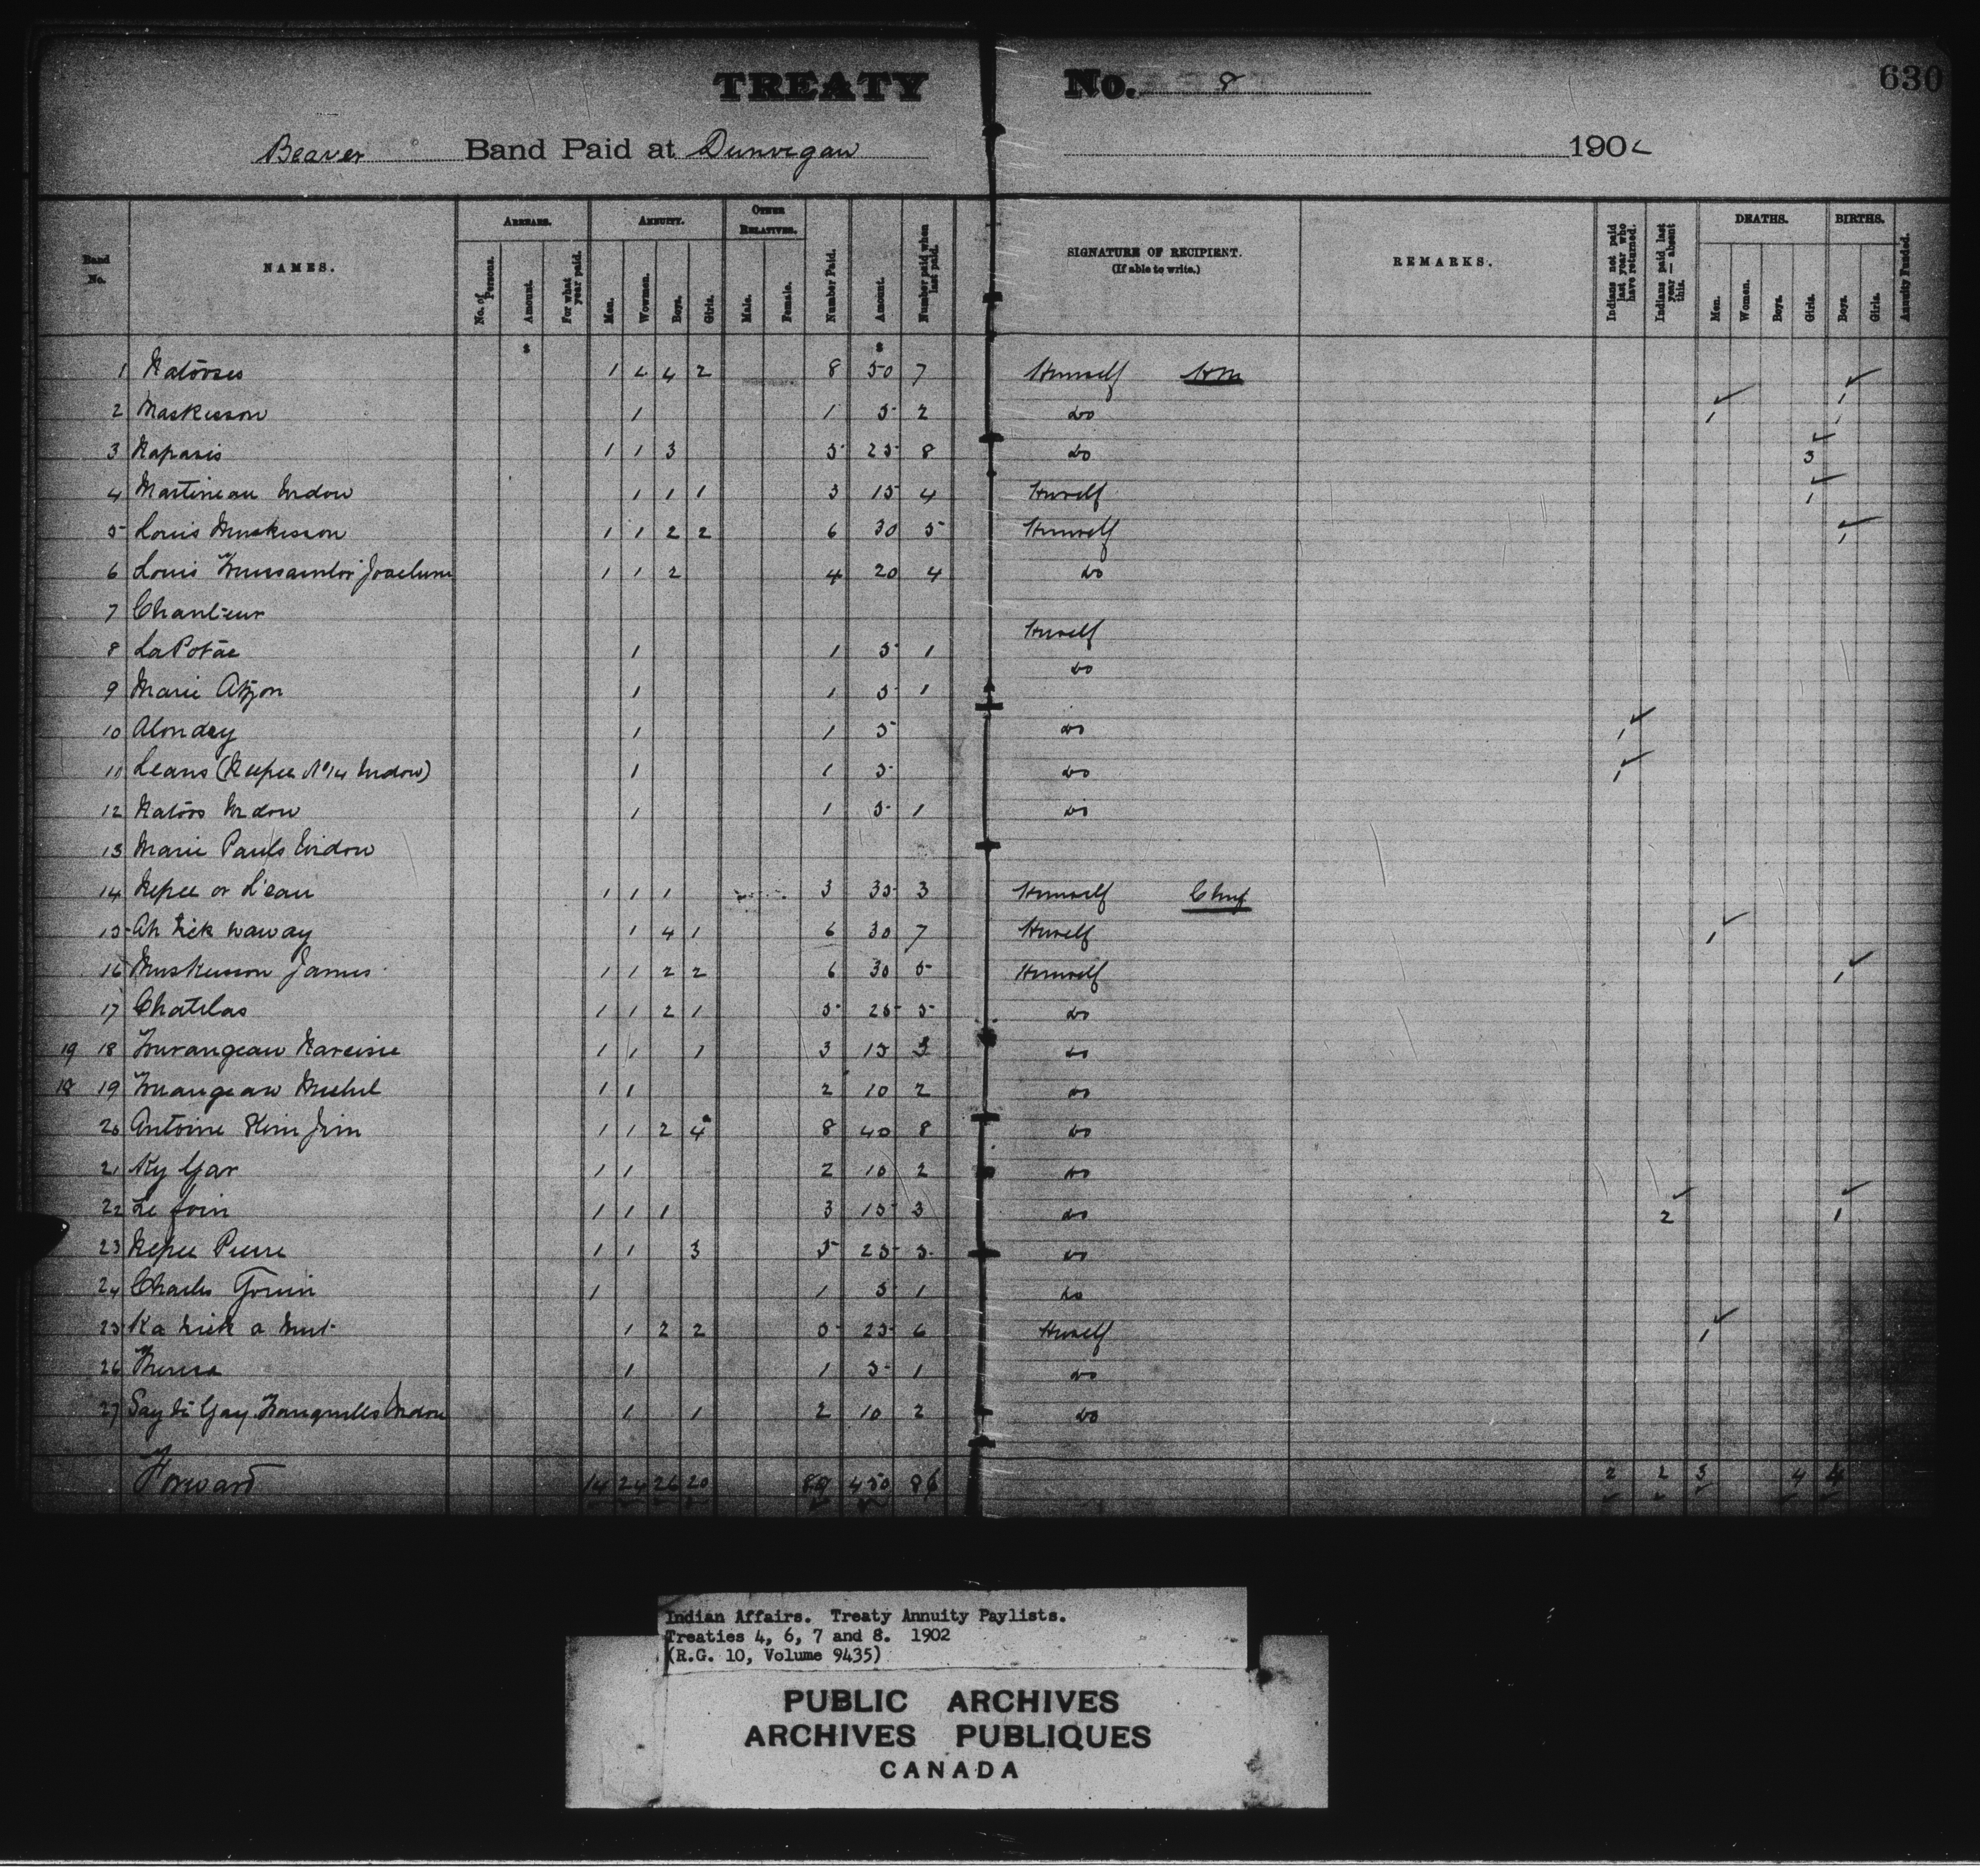 TREATY No. 8
630
Beaver Band Paid at Dunvegan 1902
Band No.
NAMES.
ARREARS.
No. of Persons.
Amount.
For what year paid.
ANNUITY.
Men.
Women.
Boys.
Girls.
OTHER RELATIVES.
Male.
Female.
Number Paid.
Amount.
Number paid when last paid.
SIGNATURE OF RECIPIENT.
(If able to write.)
REMARKS.
Indians not paid last year who have returned.
Indians paid last year — absent this.
DEATHS.
Men.
Women.
Boys.
Girls.
BIRTHS.
Boys.
Girls.
Annuity Funded.
$ $
1 Natooses 1 1 4 2 8 50 7 Himself HM 1
2 Maskisson 1 1 5 2 do 1 1
3 Napasis 1 1 3 5 25 8 do 3
4 Martineau Widow 1 1 1 3 15 4 Herself 1
5 Louis Muskisson 1 1 2 2 6 30 5 Himself 1
6 Louis 1 1 2 4 20 4 do
7 Chanteur
8 La Potae 1 1 5 1 Herself
9 Marie 1 1 5 1 do
10 Alondey 1 1 5 do 1
11 Leans (Nepee No 14 Widow) 1 1 5 do 1
12 Natoos Widow 1 1 5 1 do
13 Marie Pauls Widow
14 Nepee or L'eau 1 1 1 3 35 3 Himself Chief
15 1 4 1 6 30 7 Herself 1
16 Muskisson James 1 1 2 2 6 30 5 Himself 1
17 Chatelas 1 1 2 1 5 25 5 do
19 18 Narcisse 1 1 1 3 15 3 do
18 19 Michel 1 1 2 10 2 do
20 Antoine Jim 1 1 2 4 8 40 8 do
21 Ky Gar 1 1 2 10 2 do
22 Le foin 1 1 1 3 15 3 do 2 1
23 Nepee Pierre 1 1 3 5 25 5 do
24 Charles 1 1 5 1 do
25 1 2 2 5 25 6 Herself 1
26 Theresa 1 1 5 1 do
27 Widow 1 1 2 10 2 do
Forward 14 24 26 20 89 450 86 2 2 3 4 4
Indian Affairs. Treaty Annuity Paylists.
Treaties 4, 6, 7 and 8. 1902
(R.G. 10, Volume 9435)
PUBLIC ARCHIVES
ARCHIVES PUBLIQUES
CANADA